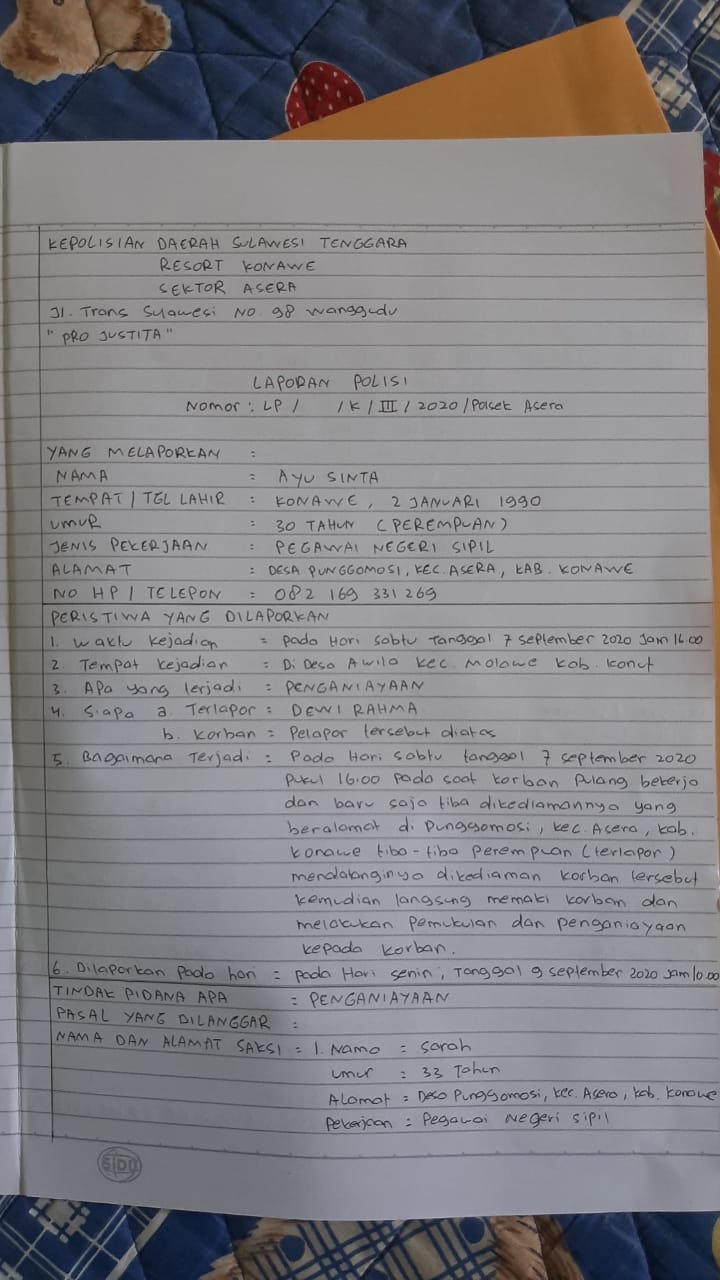 KEPOLISIAN DAERAH SULAWESI TENGGARA
RESORT KONAWE
SEKTOR ASERA
Jl. Trans Sulawesi No. 98 Wanggudu
"PRO JUSTITA"
LAPORAN POLISI
Nomor : LP / /K/III/2020/Polsek Asera
YANG MELAPORKAN :
NAMA : AYU SINTA
TEMPAT / TGL LAHIR : KONAWE, 2 JANUARI 1990
UMUR : 30 TAHUN (PEREMPUAN)
JENIS PEKERJAAN : PEGAWAI NEGERI SIPIL
ALAMAT : DESA PUNGGOMOSI, KEC. ASERA, KAB. KONAWE
NO HP / TELEPON : 082 169 331 269
PERISTIWA YANG DILAPORKAN
1. Waktu Kejadian = Pada Hari Sabtu Tanggal 7 September 2020 Jam 16.00
2. Tempat Kejadian = Di Desa Awila Kec. Molawe Kab. Konut
3. Apa yang terjadi : PENGANIAYAAN
4. Siapa a. Terlapor : DEWI RAHMA
b. Korban = Pelapor tersebut diatas
5. Bagaimana Terjadi : Pada Hari Sabtu tanggal 7 September 2020
Pukul 16.00 Pada saat korban Pulang bekerja
dan baru saja tiba dikediamannya yang
beralamat di Punggomosi, Kec. Asera, Kab.
Konawe tiba-tiba perempuan (terlapor)
mendatanginya dikediaman korban tersebut
kemudian langsung memaki korban dan
melakukan Pemukulan dan penganiayaan
kepada korban.
6. Dilaporkan Pada hari = pada Hari senin, Tanggal 9 September 2020 Jam 10.00
TINDAK PIDANA APA : PENGANIAYAAN
PASAL YANG DILANGGAR :
NAMA DAN ALAMAT SAKSI = 1. Nama = Sarah
Umur : 33 Tahun
Alamat = Desa Punggomosi, Kec. Asera, Kab. Konawe
Pekerjaan : Pegawai Negeri Sipil
SIDU